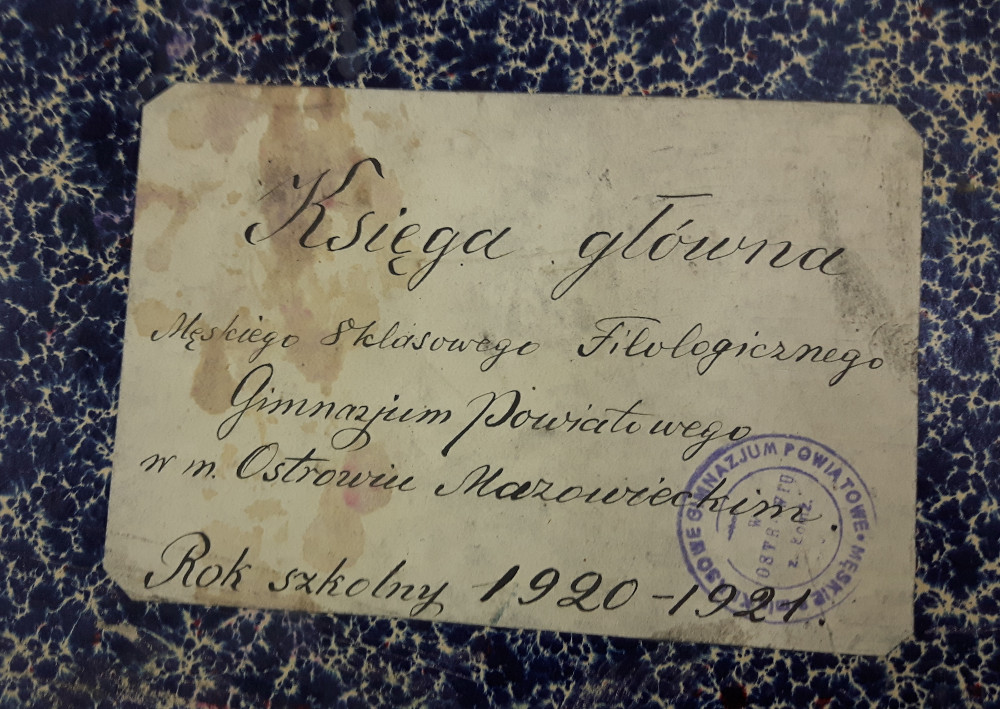 Księga główna
Męskiego 8 klasowego Filologicznego
Gimnazjum Powiatowego
w m. Ostrowiu Mazowieckim.
Rok szkolny 1920-1921.
GIMNAZJUM POWIATOWE * MĘSKIE